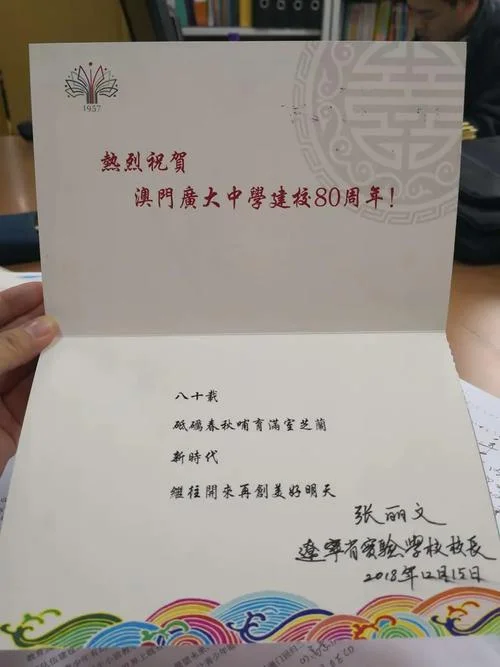 1957
熱烈祝賀
澳門廣大中學建校80周年！
八十載
砥礪春秋哺育滿室芝蘭
新時代
繼往開來再創美好明天
张丽文
遼寧省實驗學校校長
2018年12月15日